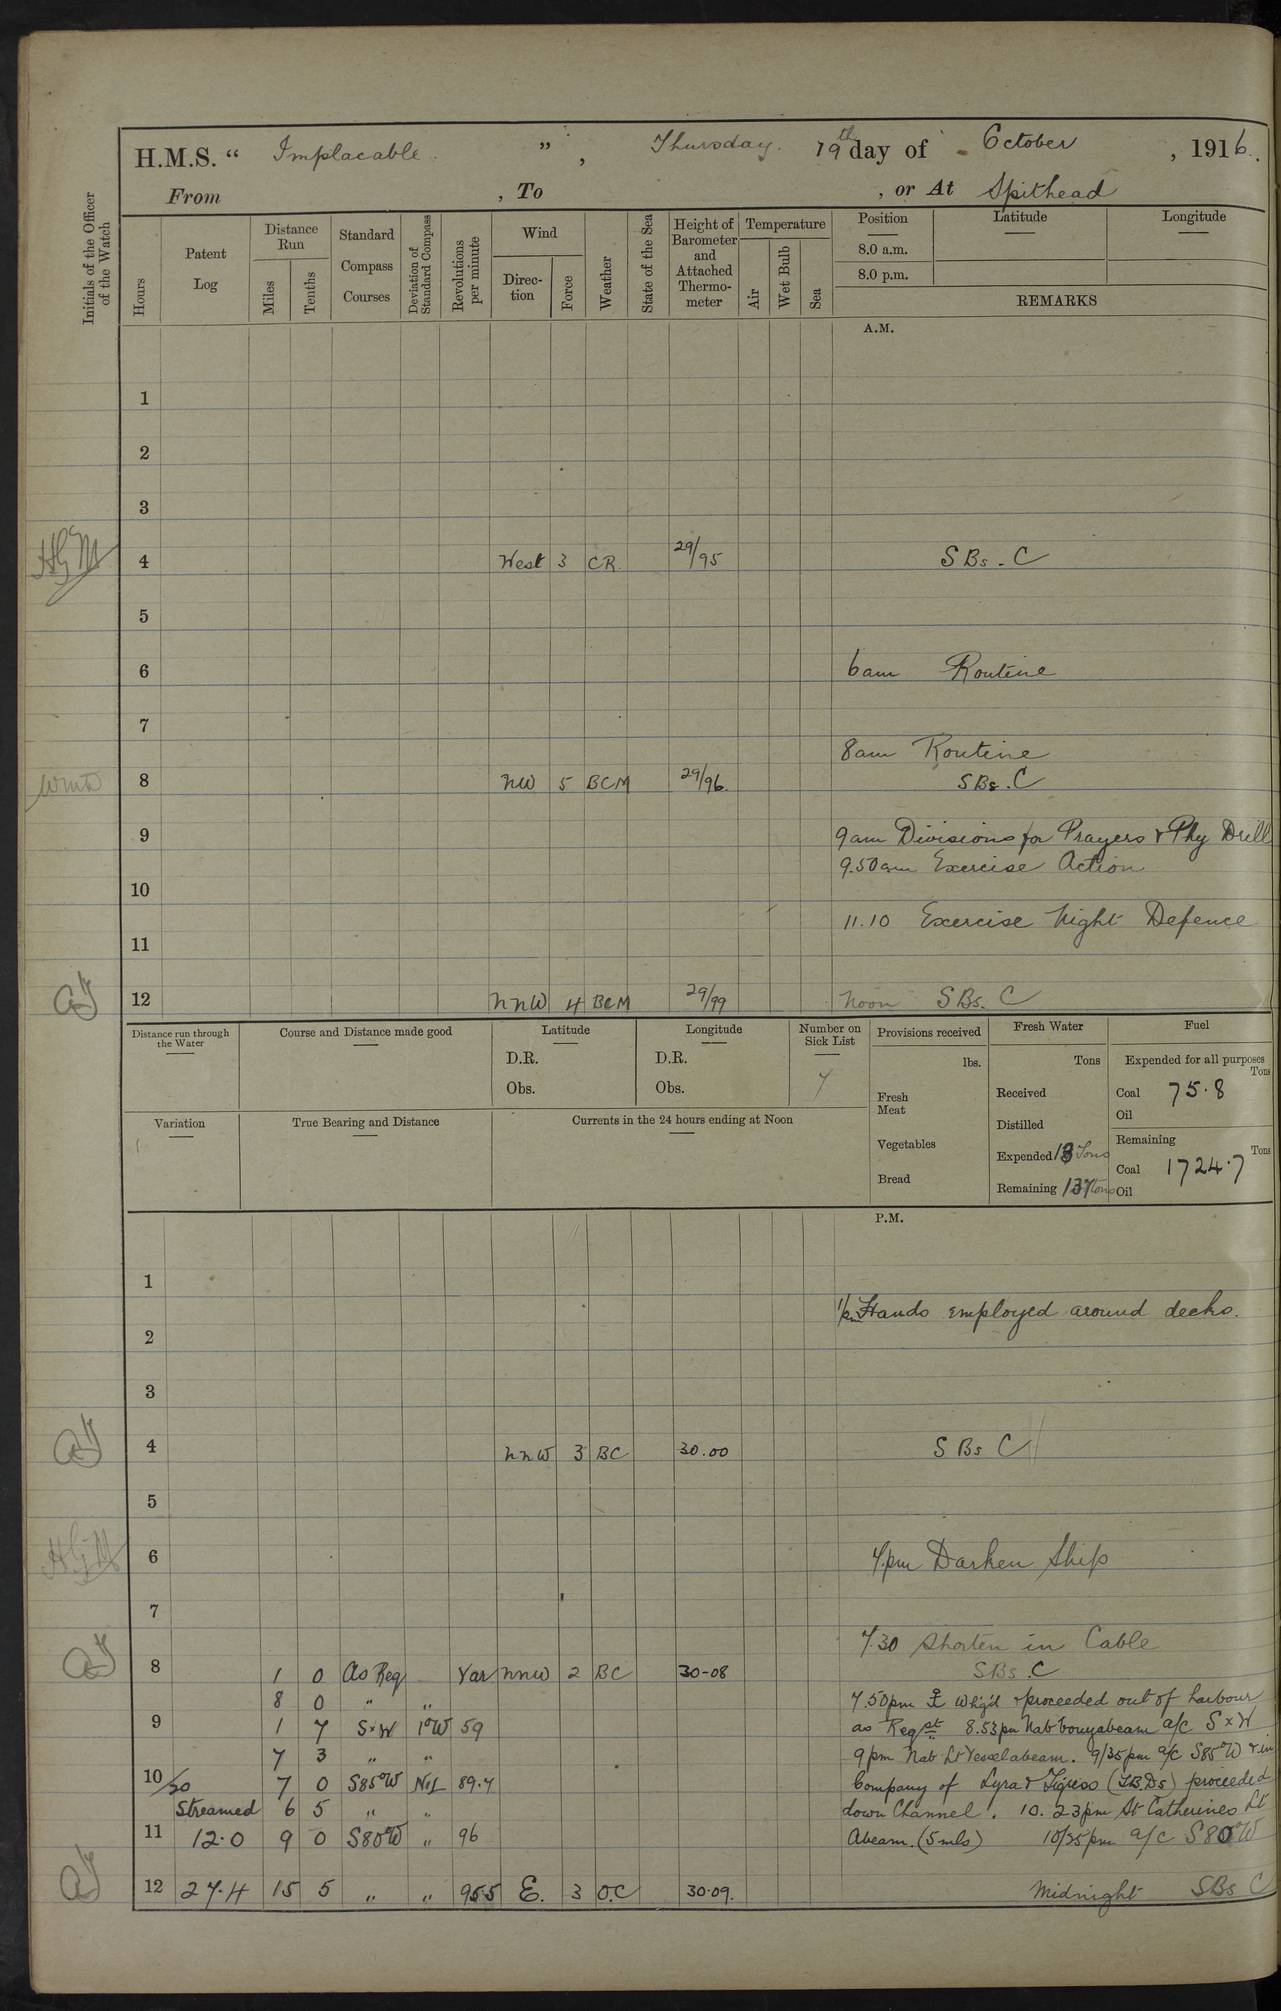 H.M.S. “ Implacable ” , Thursday. 19th day of October , 1916.
From , To , or At Spithead
Initials of the Officer of the Watch
Hours
Patent Log
Distance Run
Miles
Tenths
Standard Compass Courses
Deviation of Standard Compass
Revolutions per minute
Wind
Direction
Force
Weather
State of the Sea
Height of Barometer and Attached Thermometer
Temperature
Air
Wet Bulb
Sea
Position Latitude Longitude
8.0 a.m.
8.0 p.m.
REMARKS
A.M.
1
2
3
HGM 4 West 3 CR 29/95 SBs. C
5
6 6am Routine
7
8am Routine
8 NW 5 BCM 29/96 SBs. C
9 9am Divisions for Prayers & Phy Drill
9.50am Exercise Action
10
11.10 Exercise Night Defence
11
12 NNW 4 BCM 29/99 Noon SBs. C
Distance run through the Water
Course and Distance made good
Latitude
D.R.
Obs.
Longitude
D.R.
Obs.
Number on Sick List
7
Provisions received
lbs.
Fresh Meat
Vegetables
Bread
Fresh Water
Tons
Received
Distilled
Expended 13 Tons
Remaining 137 tons
Fuel
Expended for all purposes
Tons
Coal 75.8
Oil
Remaining
Tons
Coal 1724.7
Oil
Variation
True Bearing and Distance
Currents in the 24 hours ending at Noon
P.M.
1
1/pm Hands employed around decks.
2
3
4 NNW 3 BC 30.00 SBs C
5
HGM 6 7pm Darken Ship
7
7.30 Shorten in Cable
8 1 0 As Req Var NNW 2 BC 30-08 SBs. C
8 0 " " 7.50pm ⚓ Whg'd & proceeded out of harbour
9 1 7 SxW 1°W 59 as Reqst 8.53pm Nab bouy abeam a/c SxW
7 3 " " 9pm Nab Lt Vessel abeam. 9/35pm a/c S85°W & in
10/20 7 0 S85°W Nil 89.7 Company of Lyra & Tigress (T.B.Ds) proceeded
Streamed 6 5 " " down Channel. 10.23pm St Catherines Lt
11 12.0 9 0 S80°W " 96 Abeam. (5 mls) 10/25pm a/c S80°W
12 27.4 15 5 " " 95.5 E. 3 O.C 30.09. Midnight SBs C